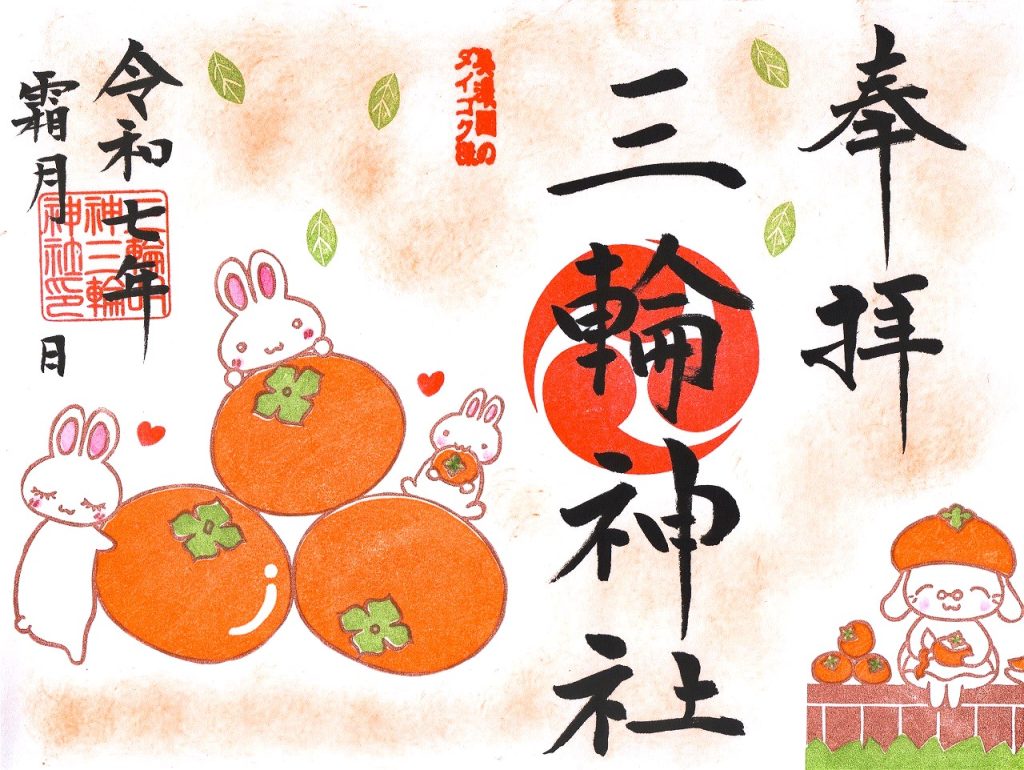 奉拝
三輪神社
ダイコク様
令和七年
霜月
日
三輪神社印